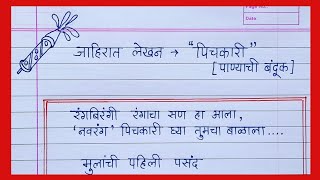 Page No.
Date
जाहिरात लेखन → "पिचकारी"
[पाण्याची बंदूक]
रंगबिरंगी रंगाचा सण हा आला,
'नवरंग' पिचकारी घ्या तुमचा बाळाला....
मुलांची पहिली पसंद